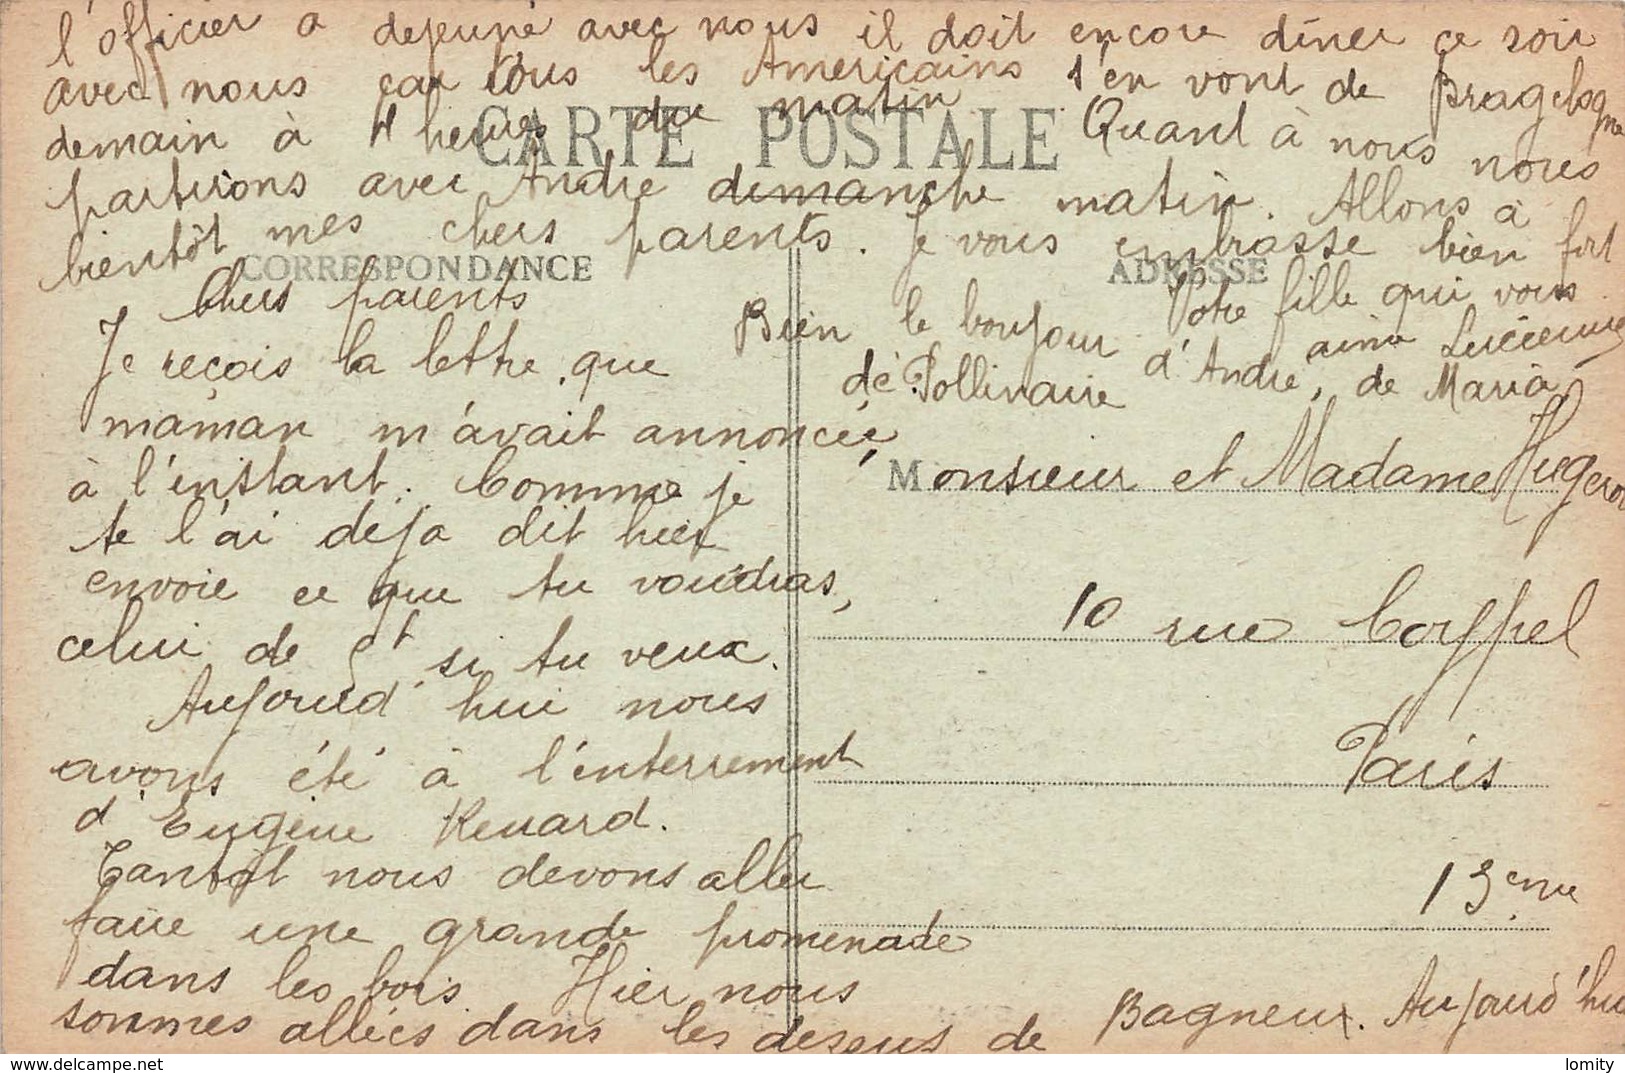 l'officier a dejeuné avec nous il doit encore diner ce soir
avec nous car tous les Americains s'en vont de Bragelogne
demain à 4 heures du matin Quant à nous nous
partirons avec Andre dimanche matin. Allons à
bientôt mes chers parents. Je vous embrasse bien fort
Votre fille qui vous
aime Lucienne
CARTE POSTALE
CORRESPONDANCE
ADRESSE
Chers parents
Je reçois la lettre que
maman m'avait annoncée,
à l'instant. Comme je
te l'ai déja dit hier
envoie ce que tu voudras,
celui de si tu veux.
Aujourd'hui nous
avons été à l'enterrement
d'Eugène Renard.
Tantot nous devons aller
faire une grande promenade
dans les bois Hier nous
sommes allées dans les dessus de Bagneux. Aujourd'hui
Bien le bonjour d'Andre, de Maria
de Pollinaire
Monsieur et Madame Hugeron
10 rue Coypel
Paris
13eme
lomity